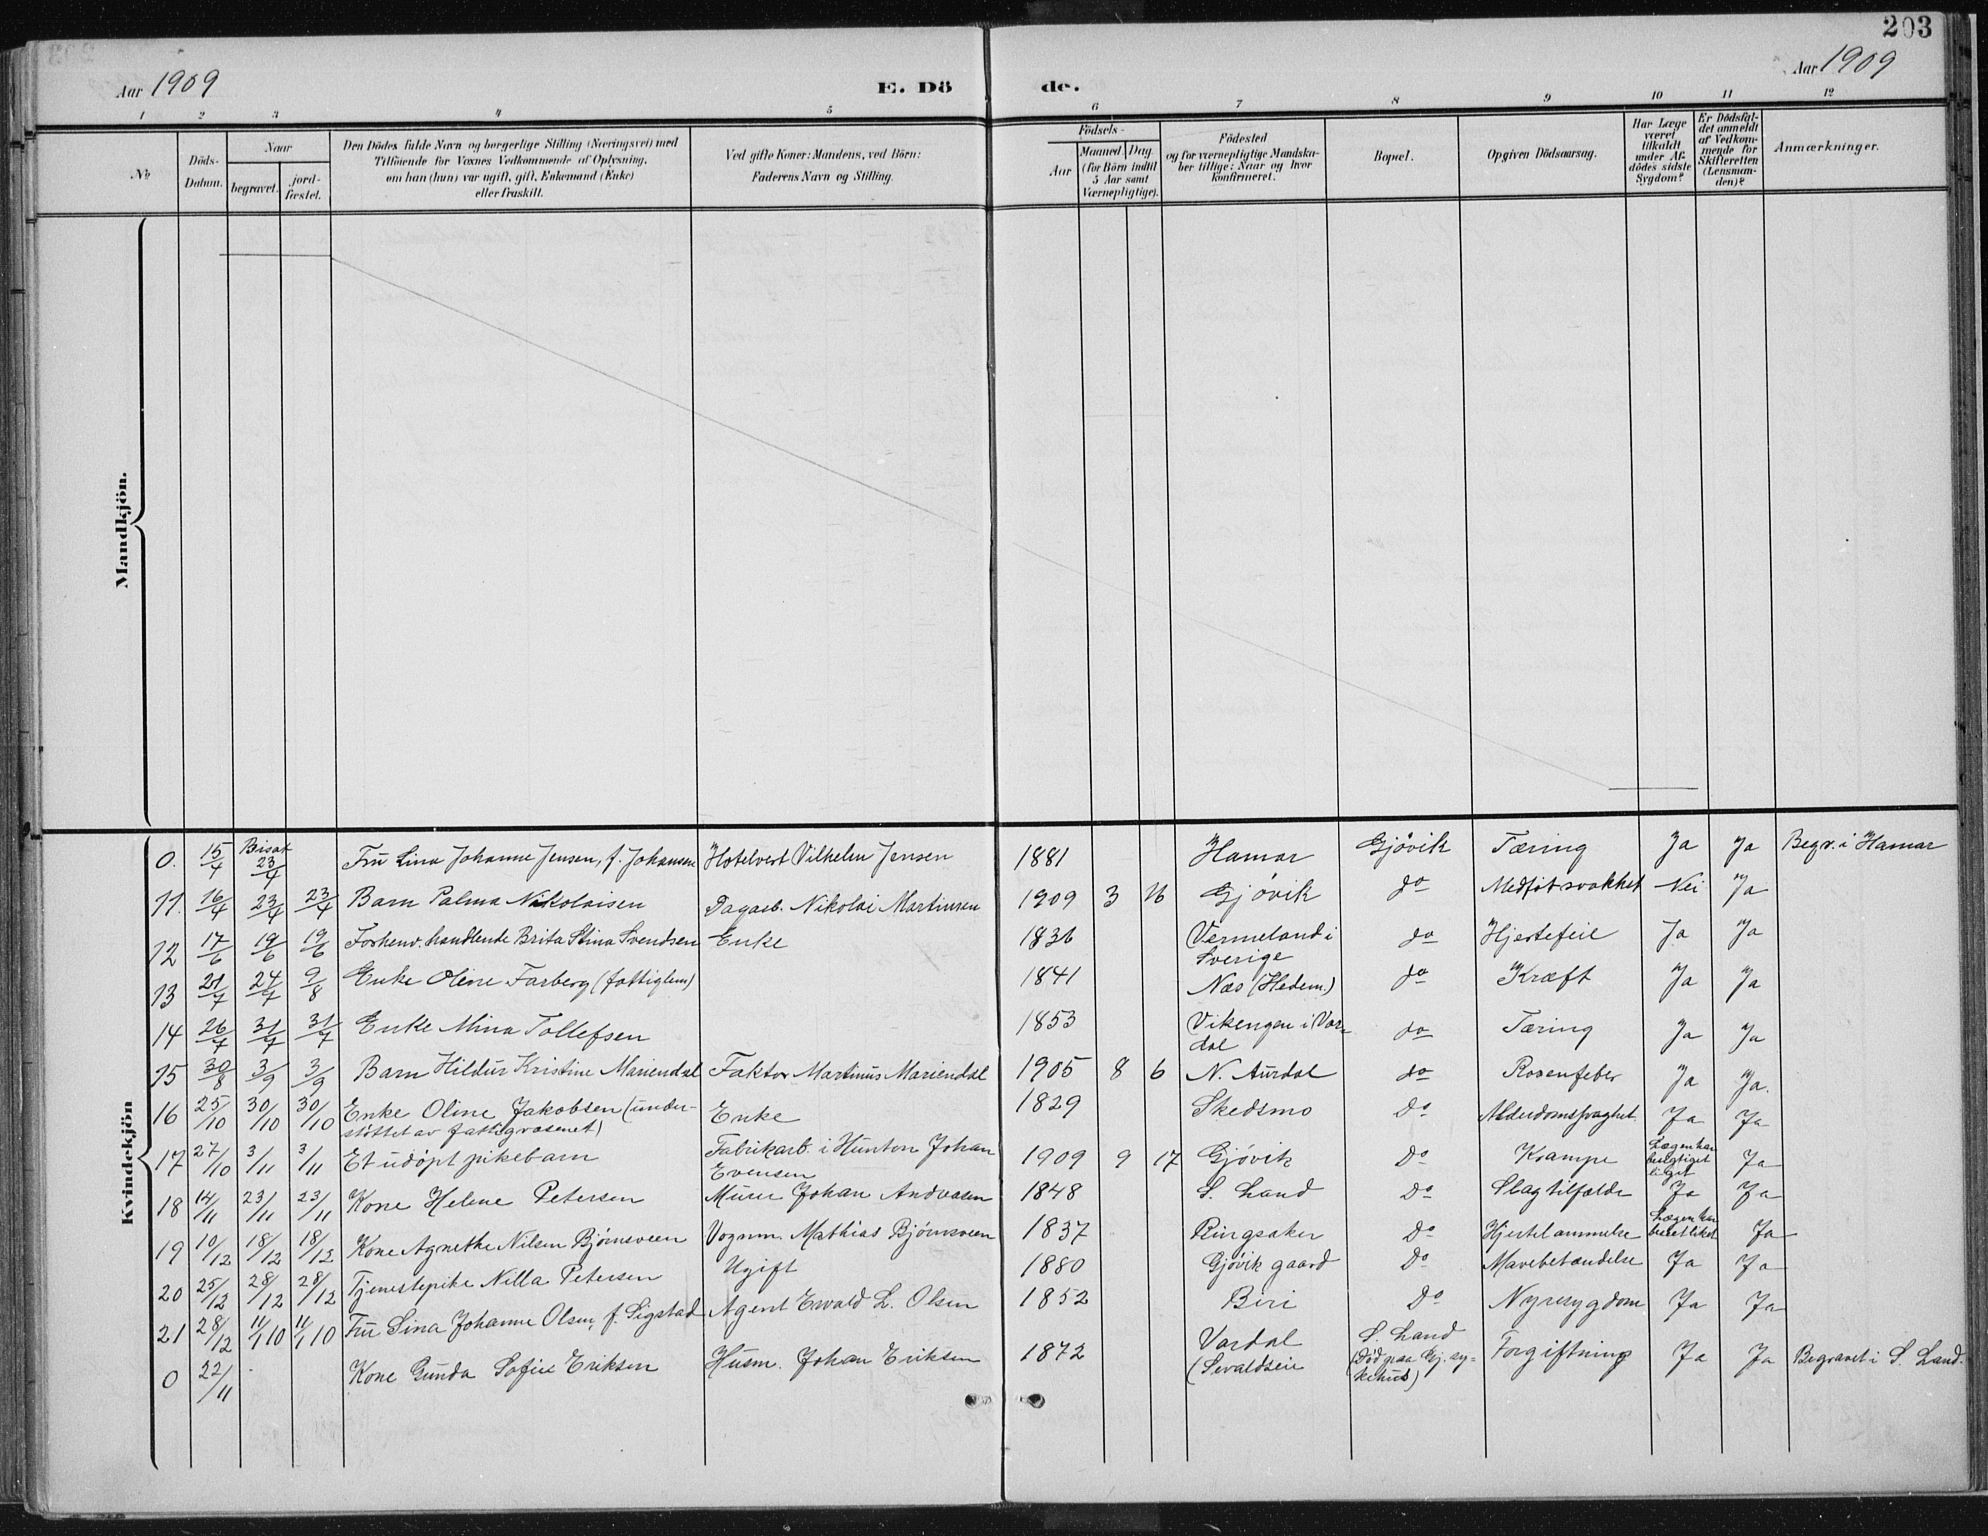 203
Aar 1909
E. Dö
de.
Aar 1909
1 2 3 4 5 6 7 8 9 10 11 12
No
Döds-
Datum.
Naar
begravet.
jord-
fæstet.
Den Dödes fulde Navn og borgerlige Stilling (Næringsvei) med
Tilföiende for Voxnes Vedkommende af Oplysning,
om han (hun) var ugift, gift, Enkemand (Enke)
eller fraskilt.
Ved gifte Koner: Mandens, ved Börn:
Faderens Navn og Stilling.
Födsels-
Aar
Maaned. Dag.
(for Börn indtil
5 Aar samt
Værnepligtige).
Födested
og for værnepligtige Mandska-
ber tillige: Naar og hvor
konfirmeret.
Bopæl.
Opgiven Dödsaarsag.
Har Læge
været
tilkaldt
under Af-
dödes sidste
Sygdom?
Er Dödsfal-
det anmeldt
af Vedkom-
mende for
Skifteretten
(Lensman-
den)?
Anmærkninger.
Mandkjön.
Kvindekjön
0. 15/4 Bisat 23/4 Fru Lina Johanne Jensen, f. Johansen Hotelvert Vilhelm Jensen 1881 Hamar Gjøvik Tæring Ja Ja Begr. i Hamar
11. 16/4 23/4 23/4 Barn Palma Nikolaisen Dagarb. Nikolai Martinsen 1909 3 16 Gjøvik do Medføt svakhet Nei Ja
12 17/6 19/6 19/6 Forhenv. handlende Brita Stina Svendsen Enke 1836 Vermeland i
Sverige do Hjertefeil Ja Ja
13 21/7 24/7 9/8 Enke Oline Farberg (fattiglem) 1841 Næs (Hedem.) do Kræft Ja Ja
14 26/7 31/7 31/7 Enke Mina Tollefsen 1853 Vikengen i Var-
dal do Tæring Ja Ja
15 30/8 3/9 3/9 Barn Hildur Kristine Mariendal Faktor Martinus Mariendal 1905 8 6 N. Aurdal do Rosenfeber Ja Ja.
16 25/10 30/10 30/10 Enke Oline Jakobsen (under-
støttet av fattigvæsenet) Enke 1829 Skedsmo Do Alderdomssvaghet Ja Ja
17 27/10 3/11 3/11 Et udøpt pikebarn Fabrikarb. i Hunton Johan
Evensen 1909 9 17 Gjøvik Do Krampe Lægen har
besigtiget
liget Ja
18 14/11 23/11 23/11 Kone Helene Petersen Murer Johan Andreasen 1848 S. Land Do Slagtilfælde Ja Ja
19 10/12 18/12 18/12 Kone Agnethe Nilsen Bjørnsveen Vognm. Mathias Bjørnsveen 1837 Ringsaker Do Hjertelammelse Lægen har
beset liket Ja
20 25/12 28/12 28/12 Tjenestepike Nilla Petersen Ugift 1880 Gjøvik gaard Do Mavebetændelse Ja Ja
21 28/12 11/1 10 11/1 10 Fru Lina Johanne Olsen, f. Sigstad Agent Evald L. Olsen 1852 Biri Do Nyresygdom Ja Ja
0 22/11 Kone Gunda Sofie Eriksen Husm. Johan Eriksen 1872 Vardal
(Sevaldseie S. Land
(Død paa Gj. sy-
kehus) Forgiftning Ja Ja Begravet i S. Land.